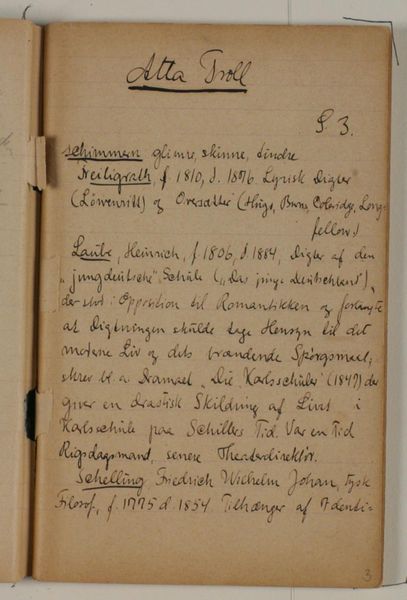 Atta Troll
S 3.
schimmern glimre, skinne, tindre
Freiligrath, f. 1810, d. 1876. Lyrisk Digter
(Löwenritt) og Oversætter (Hugo, Burns, Coleridge, Long-
fellow)
Laube, Heinrich, f. 1806, d. 1884, Digter af den
"jungdeutsche" Schule ("Das junge Deutschland"),
der stod i Opposition til Romantikken og forlangte
at Digtningen skulde tage Hensyn til det
moderne Liv og dets brændende Spörgsmaal,
skrev bl. a. Dramaet "Die Karlsschüler" (1847) der
giver en drastisk Skildring af Livet i
Karlsschule paa Schillers Tid. Var en Tid
Rigsdagsmand, senere Theaterdirektör.
Schelling, Friedrich Wilhelm Johan, tysk
Filosof, f. 1775 d. 1854. Tilhænger af Identi-
3